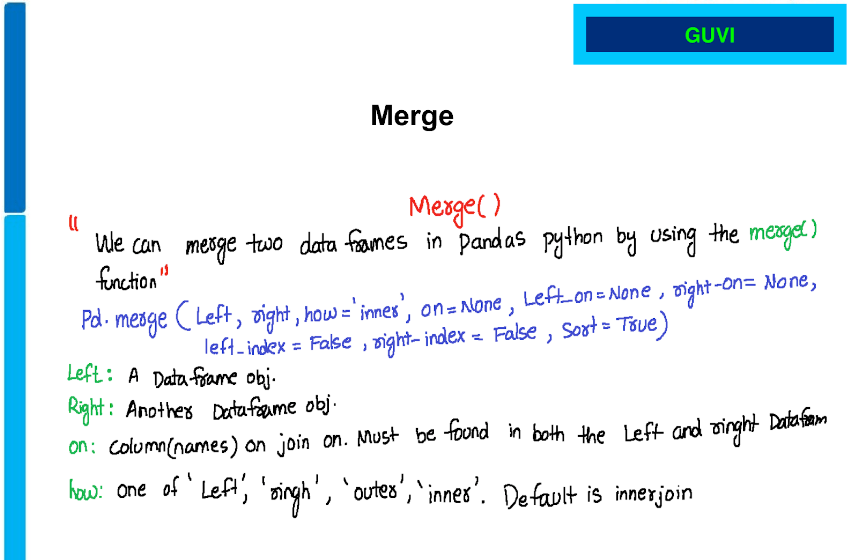 GUVI
Merge
Merge()
"We can merge two data frames in Pandas python by using the merge()
function"
Pd.merge (Left, right, how='inner', on=None, Left_on=None, right-on= None,
left_index = False, right-index = False, Sort = True)
Left: A Dataframe obj.
Right: Another Dataframe obj.
on: column(names) on join on. Must be found in both the Left and ringht Datafram
how: one of 'Left', 'ringh', 'outer', 'inner'. Default is innerjoin